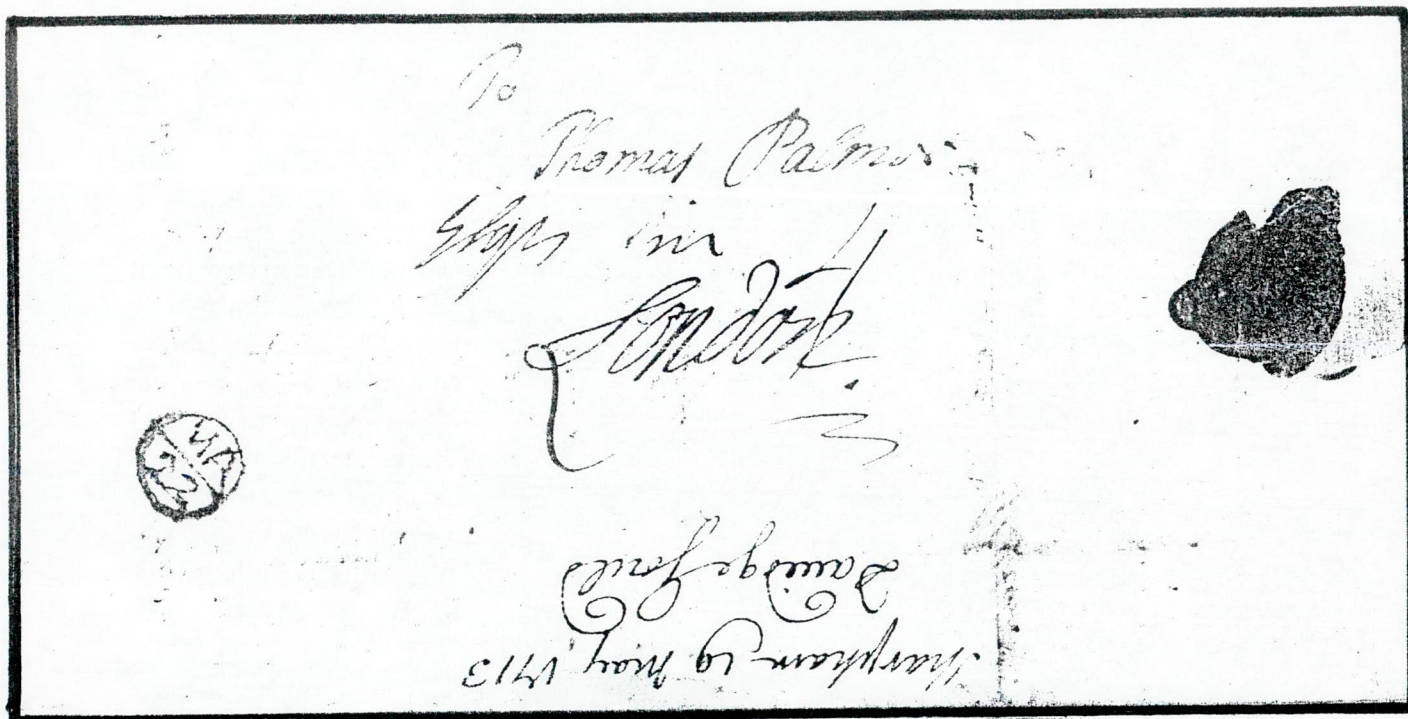 To
Thomas Palmer
Esqr in
London
MA
22
Sharpham 19 May 1713
Dauidge Gould